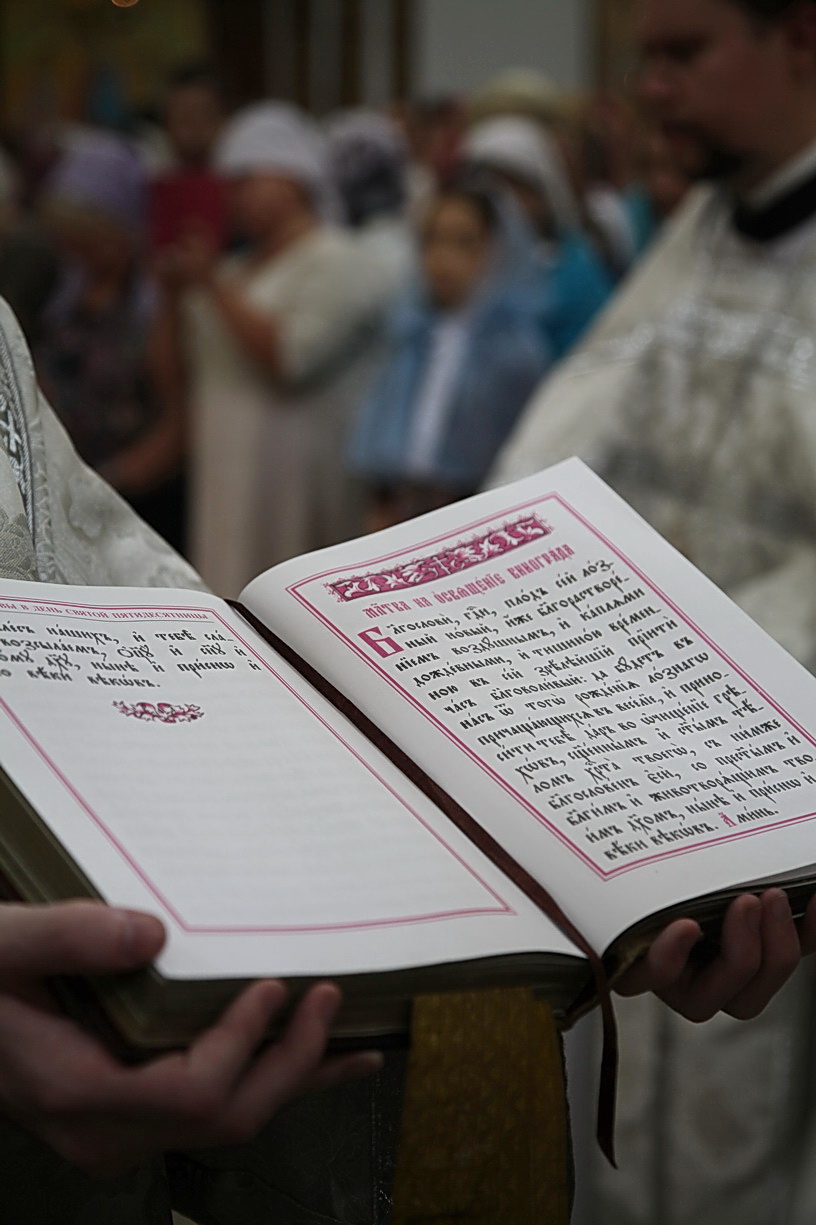 вы в день святой пятидесятницы
нашихъ, и҆ тебѣ сла́-
возсыла́емъ, ѻ҆ц҃ꙋ̀ и҆ сн҃ꙋ и҆
дх҃ꙋ, ны́нѣ и҆ при́снѡ и҆
во вѣ́ки вѣкѡ́въ.
мл҃тва на ѡ҆свѧще́нїе вїногра́да
Бл҃гословѝ, гдⷭ҇и, пло́дъ се́й ло́з-
ный но́вый, и҆́же бл҃горастворе́-
нїемъ возду́шнымъ, и҆ ка́плѧми
дождє́вными, и҆ тишино́ю вре́мен-
ною въ се́й зрѣ́лѣйшїй прїитѝ
ча́съ бл҃говоли́вый: да бꙋ́детъ въ
на́съ ѿ тогѡ̀ рожде́нїѧ ло́знагѡ
причаща́ющихсѧ въ весе́лїе, и҆ прино-
си́ти тебѣ̀ да́ръ во ѡ҆чище́нїе грѣ-
хѡ́въ, сщ҃е́ннымъ и҆ ст҃ы́мъ тѣ́-
ломъ хрⷭ҇та̀ твоегѡ̀, съ ни́мже
бл҃гослове́нъ є҆сѝ, со прест҃ы́мъ и҆
бл҃ги́мъ и҆ животворѧ́щимъ тво-
и́мъ дх҃омъ, ны́нѣ и҆ при́снѡ и҆ во
вѣ́ки вѣкѡ́въ. А҆ми́нь.